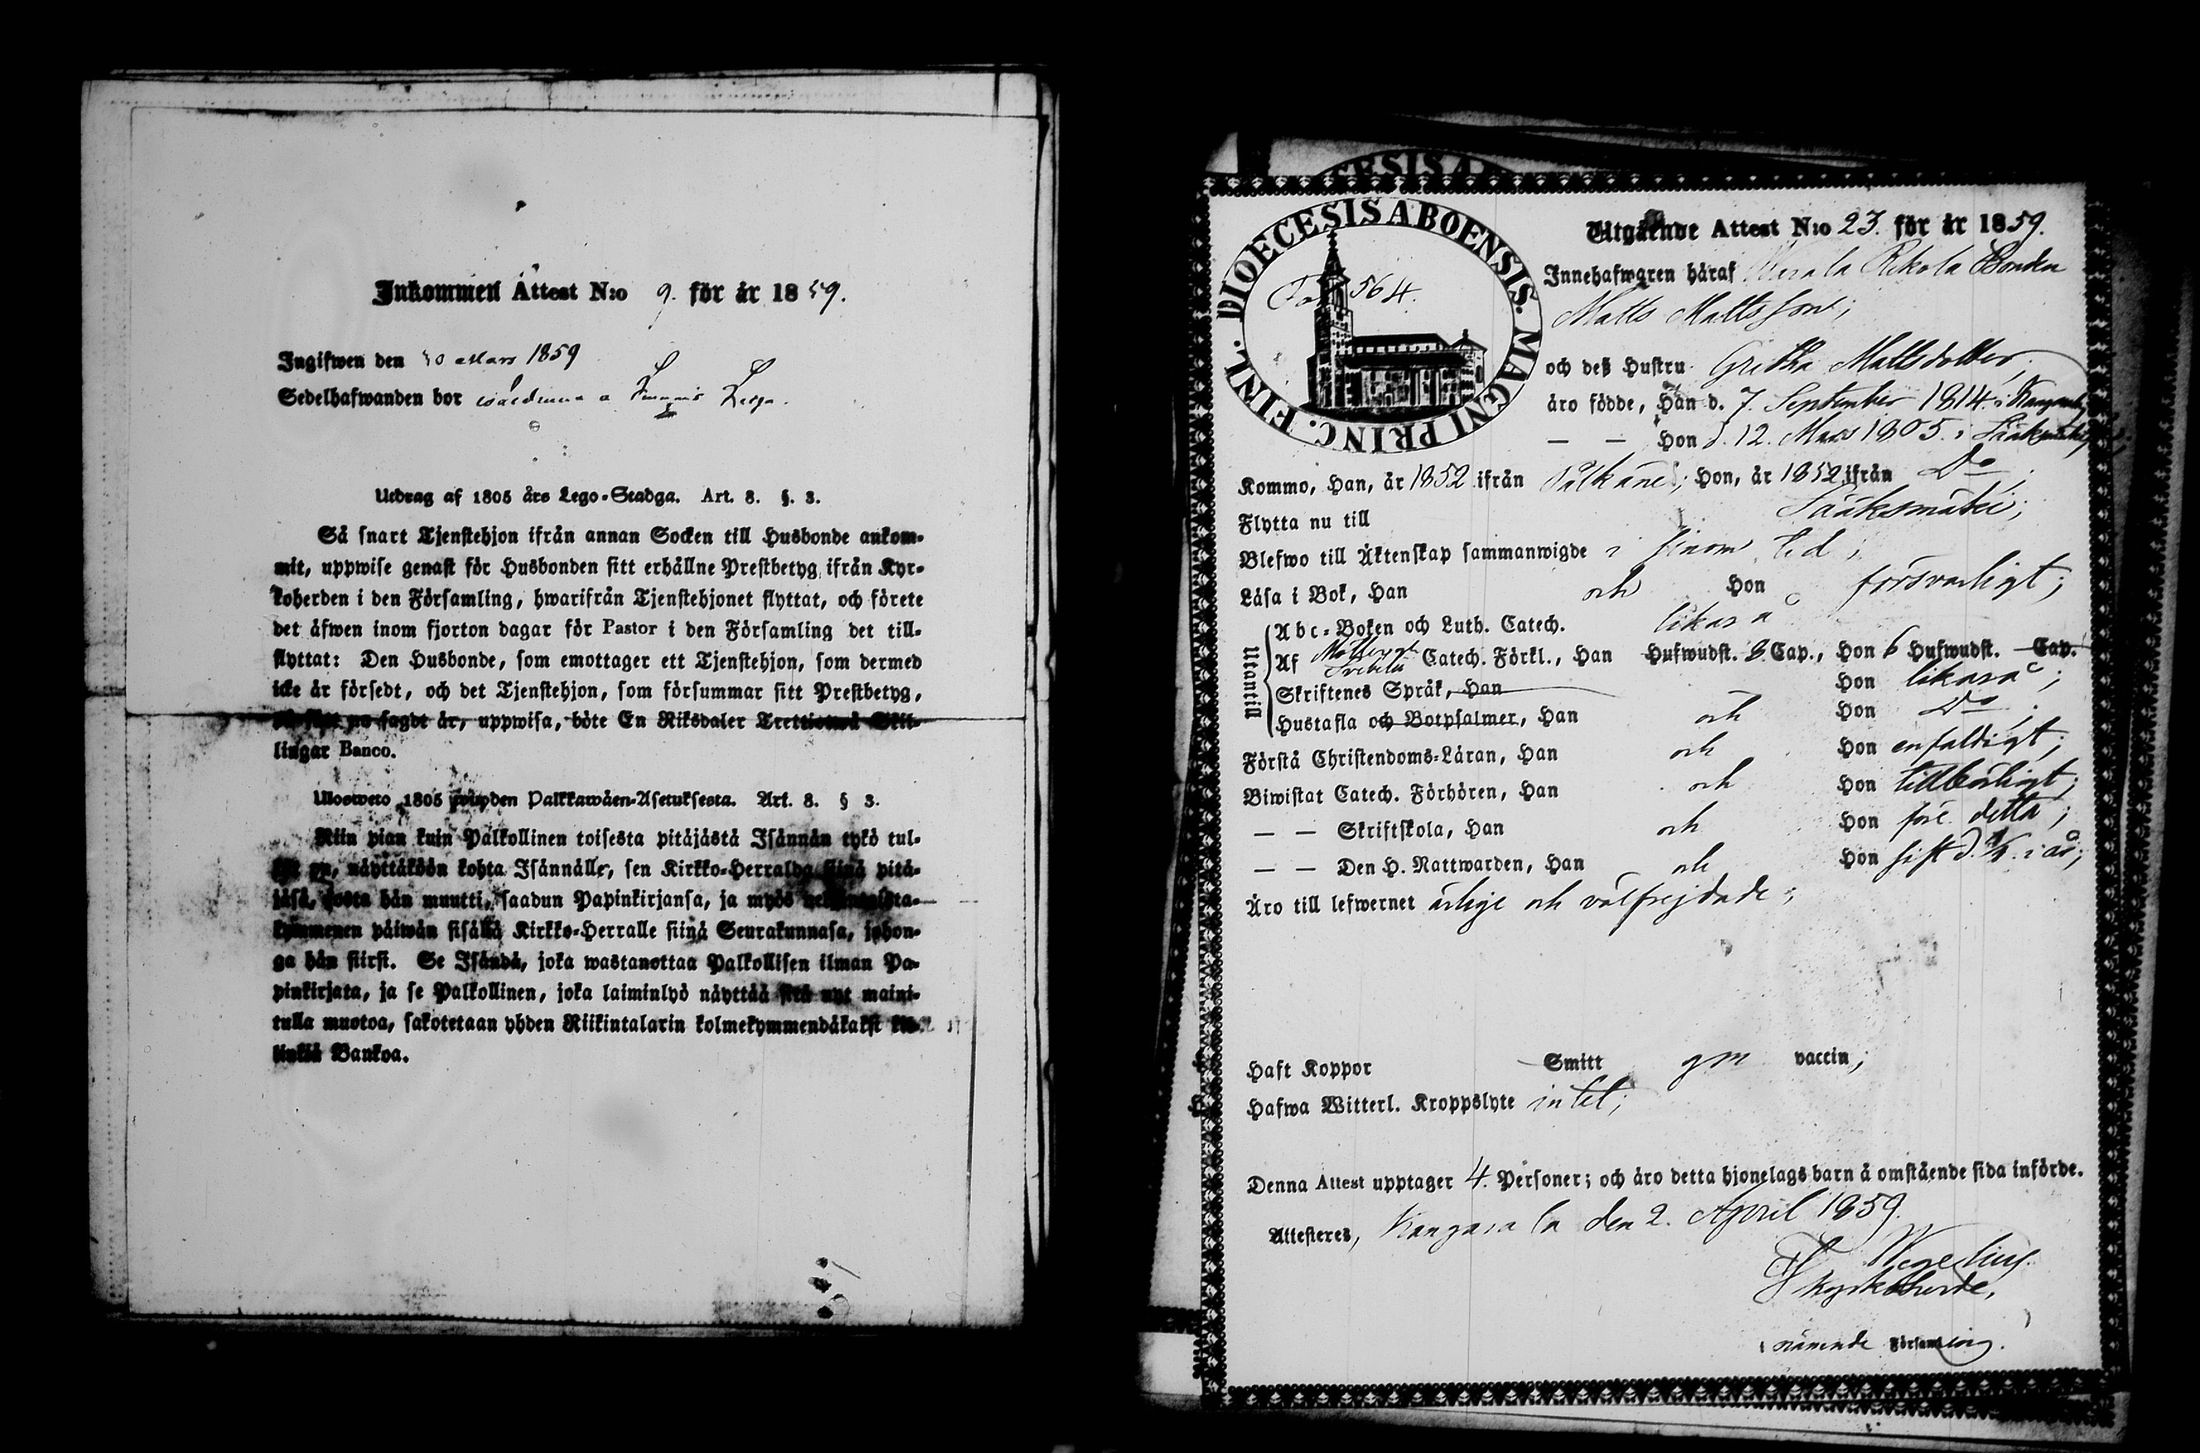 Inkommen Attest N:o 9. för år 1859.
Ingifwen den 30 Mars 1859
Sedelhafwanden bor
Utdrag af 1805 års Lego-Stadga. Art. 8. §. 3.
Så snart Tjenstehjon ifrån annan Socken till Husbonde ankom-
mit, uppwise genast för Husbonden sitt erhållne Prestbetyg ifrån Kyr-
koherden i den Församling, hwarifrån Tjenstehjonet flyttat, och förete
det äfwen inom fjorton dagar för Pastor i den Församling det till-
flyttat: Den Husbonde, som emottager ett Tjenstehjon, som dermed
icke är försedt, och det Tjenstehjon, som försummar sitt Prestbetyg,
nu sagdt är, uppwisa, böte En Riksdaler Trettiotwå Skil-
lingar Banco.
Ulosweto 1805 wuoden Palkkawäen-Asetuksesta. Art. 8. § 3.
Niin pian kuin Palkollinen toisesta pitäjästä Isännän tykö tul-
lut on, näyttäköön kohta Isännälle, sen Kirkko-Herralda siinä pitä-
jäsä, josta hän muutti, saadun Papinkirjansa, ja myös neljäntoista-
kymmenen päiwän sisällä Kirkko-Herralle siinä Seurakunnasa, johon-
ga hän siirsi. Se Isändä, joka wastanottaa Palkollisen ilman Pa-
pinkirjata, ja se Palkollinen, joka laiminlyö näyttää sitä nyt maini-
tulla muotoa, sakotetaan yhden Riikintalarin kolmekymmendäkaksi kil-
linkiä Bankoa.
DIOECESIS ABOENSIS. MAGNI PRINC. FINL.
Fol. 564.
Utgående Attest N:o 23. för år 1859.
Innehafwaren häraf Rekola Bonden
Matts Mattsson;
och deß Hustru Gretha Mattsdotter,
äro födde, Han d. 7. September 1814. i Kangasala
— — Hon d. 12. Mars 1805. i Sääksmäki
Kommo, Han, år 1852 ifrån Pälkäne; Hon, år 1852 ifrån Do.
Flytta nu till Sääksmäki;
Blefwo till Äktenskap sammanwigde i sinom tid;
Läsa i Bok, Han och Hon försvarligt;
Utantill
Abc-Boken och Luth. Catech. likaså
Af Catech. Förkl., Han Hufwudst. 8. Cap., Hon 6 Hufwudst. Cap.
Skriftenes Språk, Han Hon likaså;
Hustafla och Botpsalmer, Han och Hon Do.
Förstå Christendoms-Läran, Han och Hon enfaldigt;
Biwistat Catech. Förhören, Han och Hon tillbörligt;
— — Skriftskola, Han och Hon före detta;
— — Den H. Nattwarden, Han och Hon sist d. i år;
Äro till lefwernet ärlige och välfrejdade;
Haft Koppor Smitt gm vaccin;
Hafwa Witterl. Kroppslyte intet;
Denna Attest upptager 4. Personer; och äro detta hjonelags barn å omstående sida införde.
Attesteres, Kangasala den 2. April 1859.
Kyrkoherde,
i nämnde Församling.